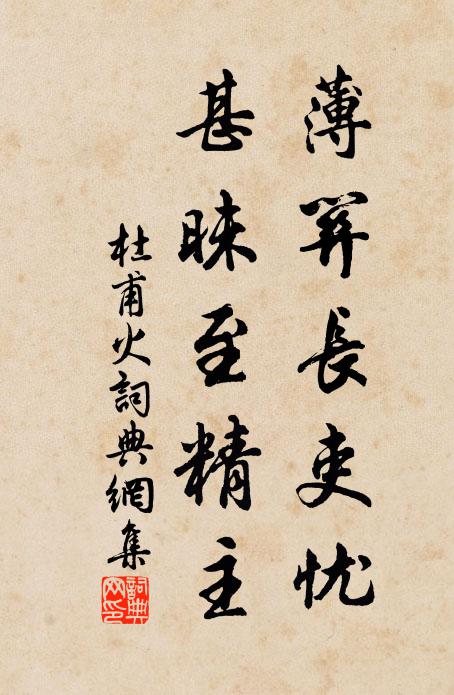 薄關長吏忧
甚昧至精主
杜甫火詞典網集
詞典
网印